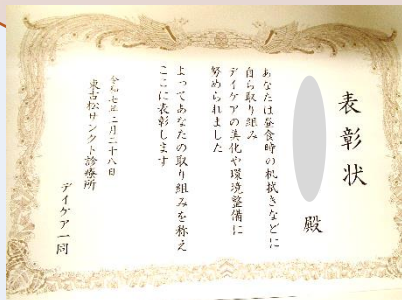 表彰状
殿
あなたは昼食時の机拭きなどに
自ら取り組み
デイケアの美化や環境整備に
努められました
よってあなたの取り組みを称え
ここに表彰します
令和七年二月二十八日
東古松サンクト診療所
デイケア一同